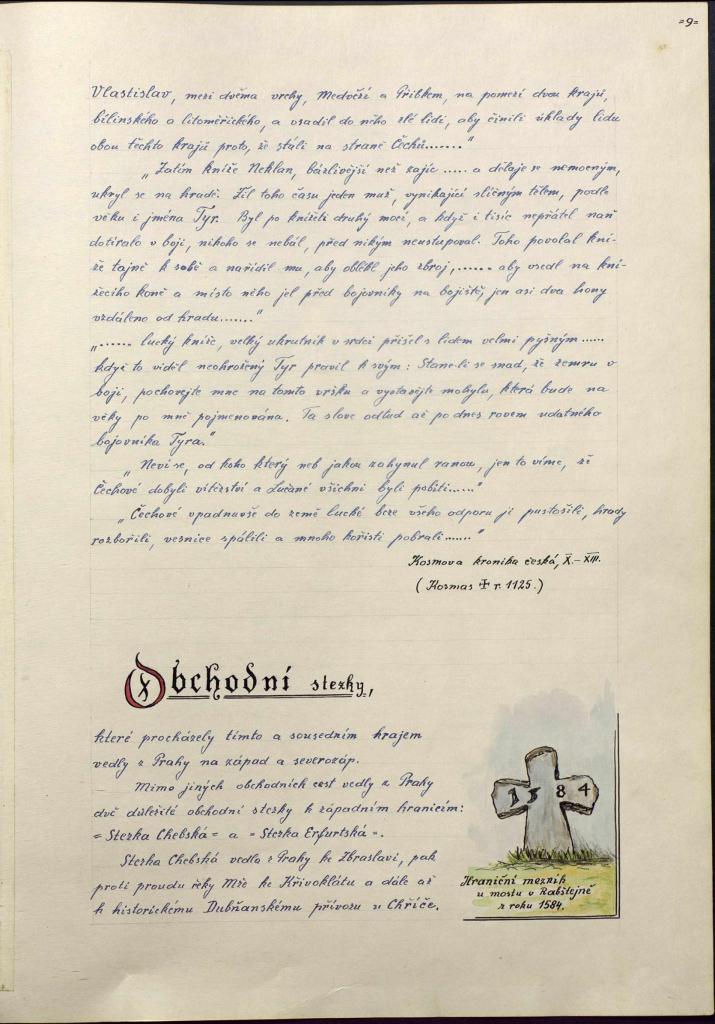 =9=
Vlastislav, mezi dvěma vrchy, Medvězí a Přibkem, na pomezí dvou krajů,
bílinského a litoměřického, a vsadil do něho zlé lidi, aby činili úklady lidu
obou těchto krajů proto, že stáli na straně Čechů......."
"Zatím kníže Neklan, bázlivější než zajíc ..... a dělaje se nemocným,
ukryl se na hradě. Žil toho času jeden muž, vynikající sličným tělem, podle
věku i jména Tyr. Byl po knížeti druhý mocí, a když i tisíc nepřátel naň
dotíralo v boji, nikoho se nebál, před nikým neustupoval. Toho povolal kní-
že tajně k sobě a nařídil mu, aby oblékl jeho zbroj,...... aby vsedl na kní-
žecího koně a místo něho jel před bojovníky na bojiště, jen asi dva hony
vzdáleno od hradu......."
"...... lucký kníže, velký ukrutník v srdci přišel s lidem velmi pyšným ......
když to viděl neohrožený Tyr pravil k svým: Stane-li se snad, že zemru v
boji, pochovejte mne na tomto vršku a vystavějte mohylu, která bude na
věky po mně pojmenována. Ta slove odtud až po dnes rovem udatného
bojovníka Tyra."
"Neví se, od koho který neb jakou zahynul ranou, jen to víme, že
Čechové dobyli vítězství a Lučané všichni byli pobiti......"
"Čechové vpadnuvše do země lucké beze všeho odporu ji pustošili, hrady
rozbořili, vesnice spálili a mnoho kořisti pobrali......."
Kosmova kronika česká, X.-XIII.
(Kosmas ✝ r. 1125.)
Obchodní stezky,
které procházely tímto a sousedním krajem
vedly z Prahy na západ a severozáp.
Mimo jiných obchodních cest vedly z Prahy
dvě důležité obchodní stezky k západním hranicím:
=Stezka Chebská= a =Stezka Erfurtská=.
Stezka Chebská vedla z Prahy ke Zbraslavi, pak
proti proudu řeky Mže ke Křivoklátu a dále až
k historickému Dubňanskému přívozu u Chříče.
1584
Hraniční mezník
u mostu v Rabštejně
z roku 1584.